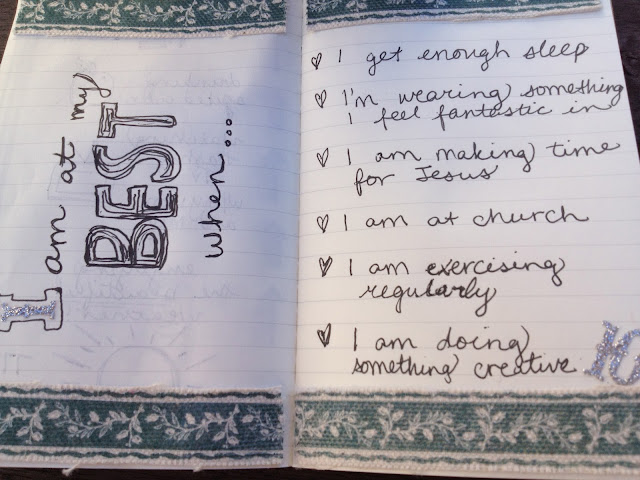 I am at my
BEST
when...
♡ I get enough sleep
♡ I'm wearing something
I feel fantastic in
♡ I am making time
for Jesus
♡ I am at church
♡ I am exercising
regularly
♡ I am doing
something creative
10